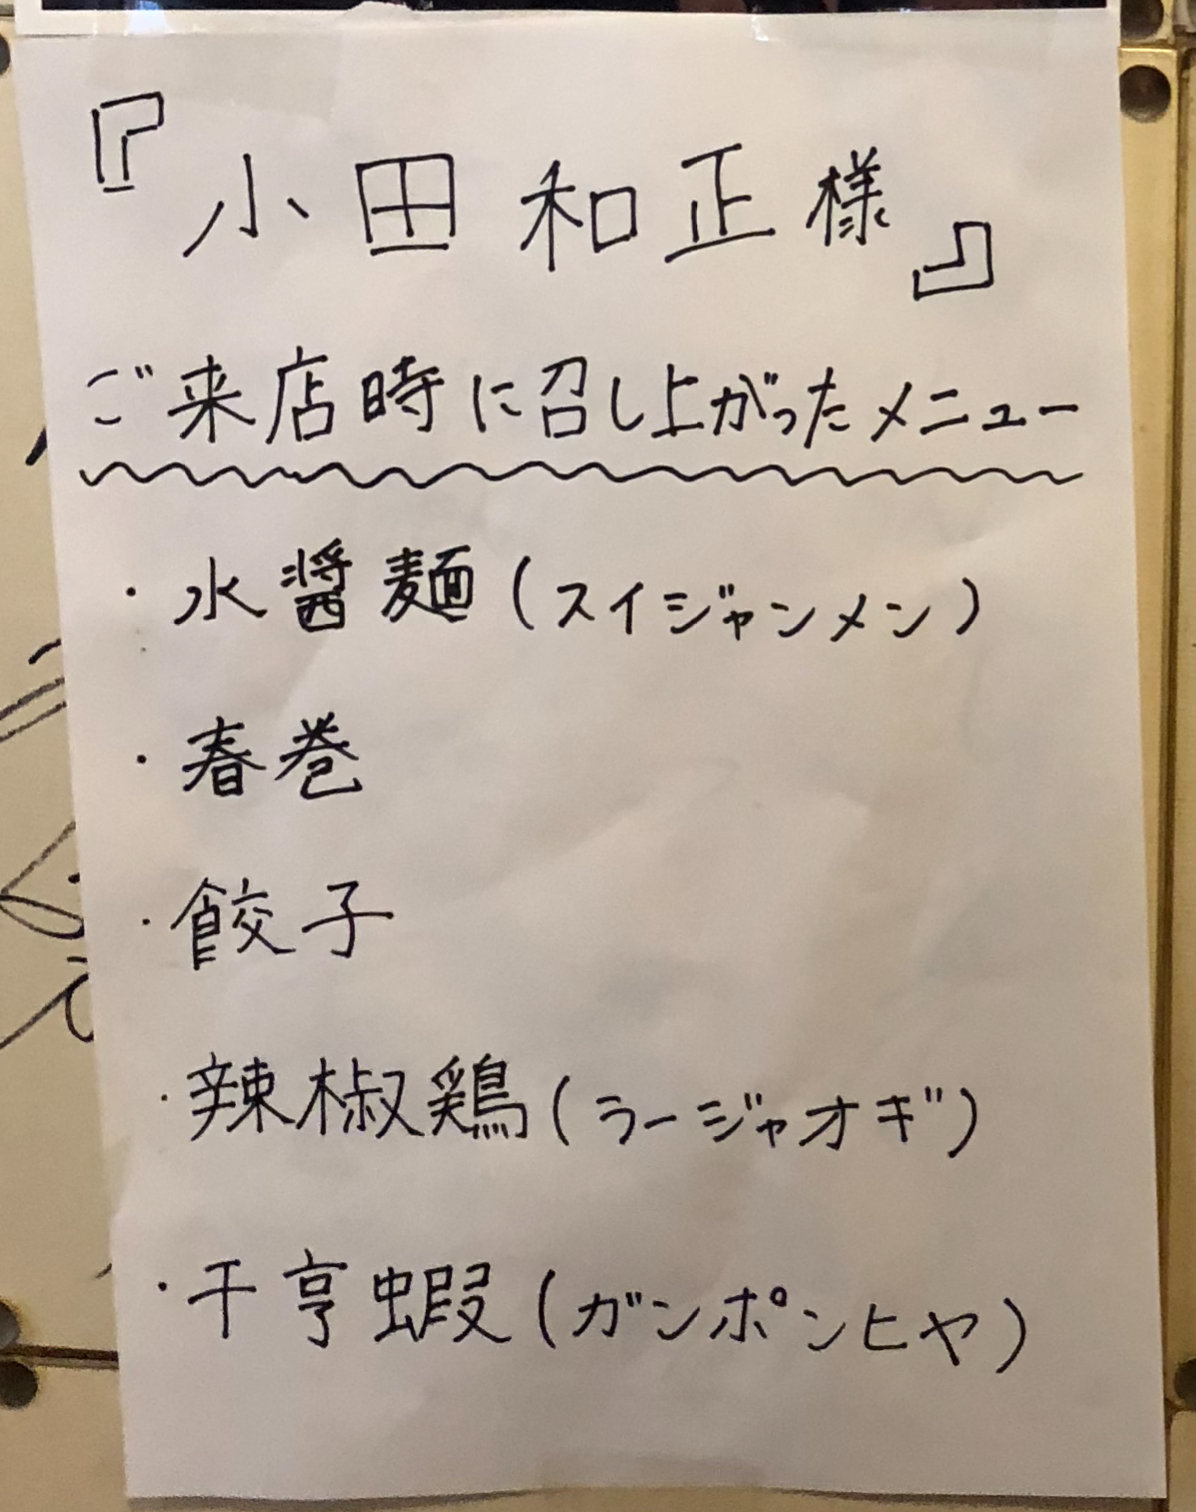 『小田和正様』
ご来店時に召し上がったメニュー
・水醤麺(スイジャンメン)
・春巻
・餃子
・辣椒鶏(ラージャオギ)
・干亨蝦(ガンポンヒヤ)